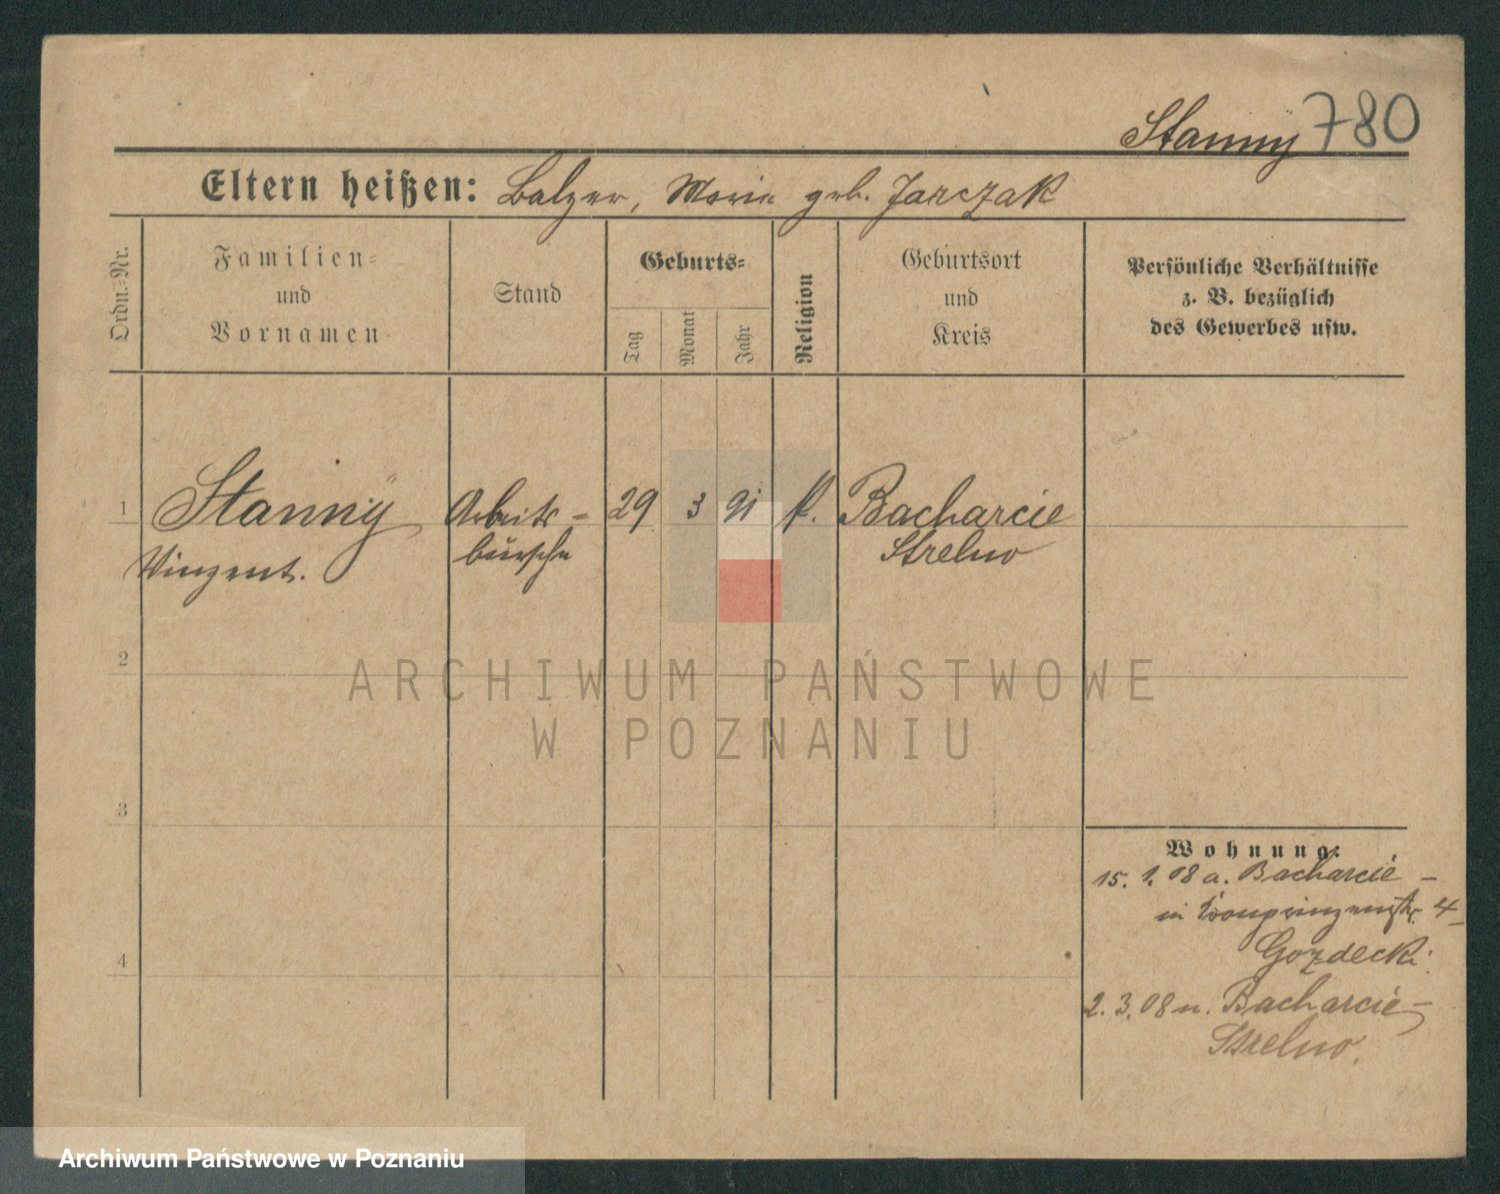 Stanny 780
Eltern heißen: Balzer, Marie geb. Jarczak
Ordn.-Nr.
Familien-
und
Vornamen
Stand
Geburts-
Tag
Monat
Jahr
Religion
Geburtsort
und
Kreis
Persönliche Verhältnisse
z. B. bezüglich
des Gewerbes usw.
1 Stanny Arbeits- 29 3 91 k. Bacharcie
Vinzent. bursche Strelno
2
ARCHIWUM PAŃSTWOWE
W POZNANIU
3
Wohnung:
15. 1. 08 a. Bacharcie -
in Kronprinzenstr. 4
Gozdecki
4
2. 3. 08 n. Bacharcie -
Strelno.
Archiwum Państwowe w Poznaniu